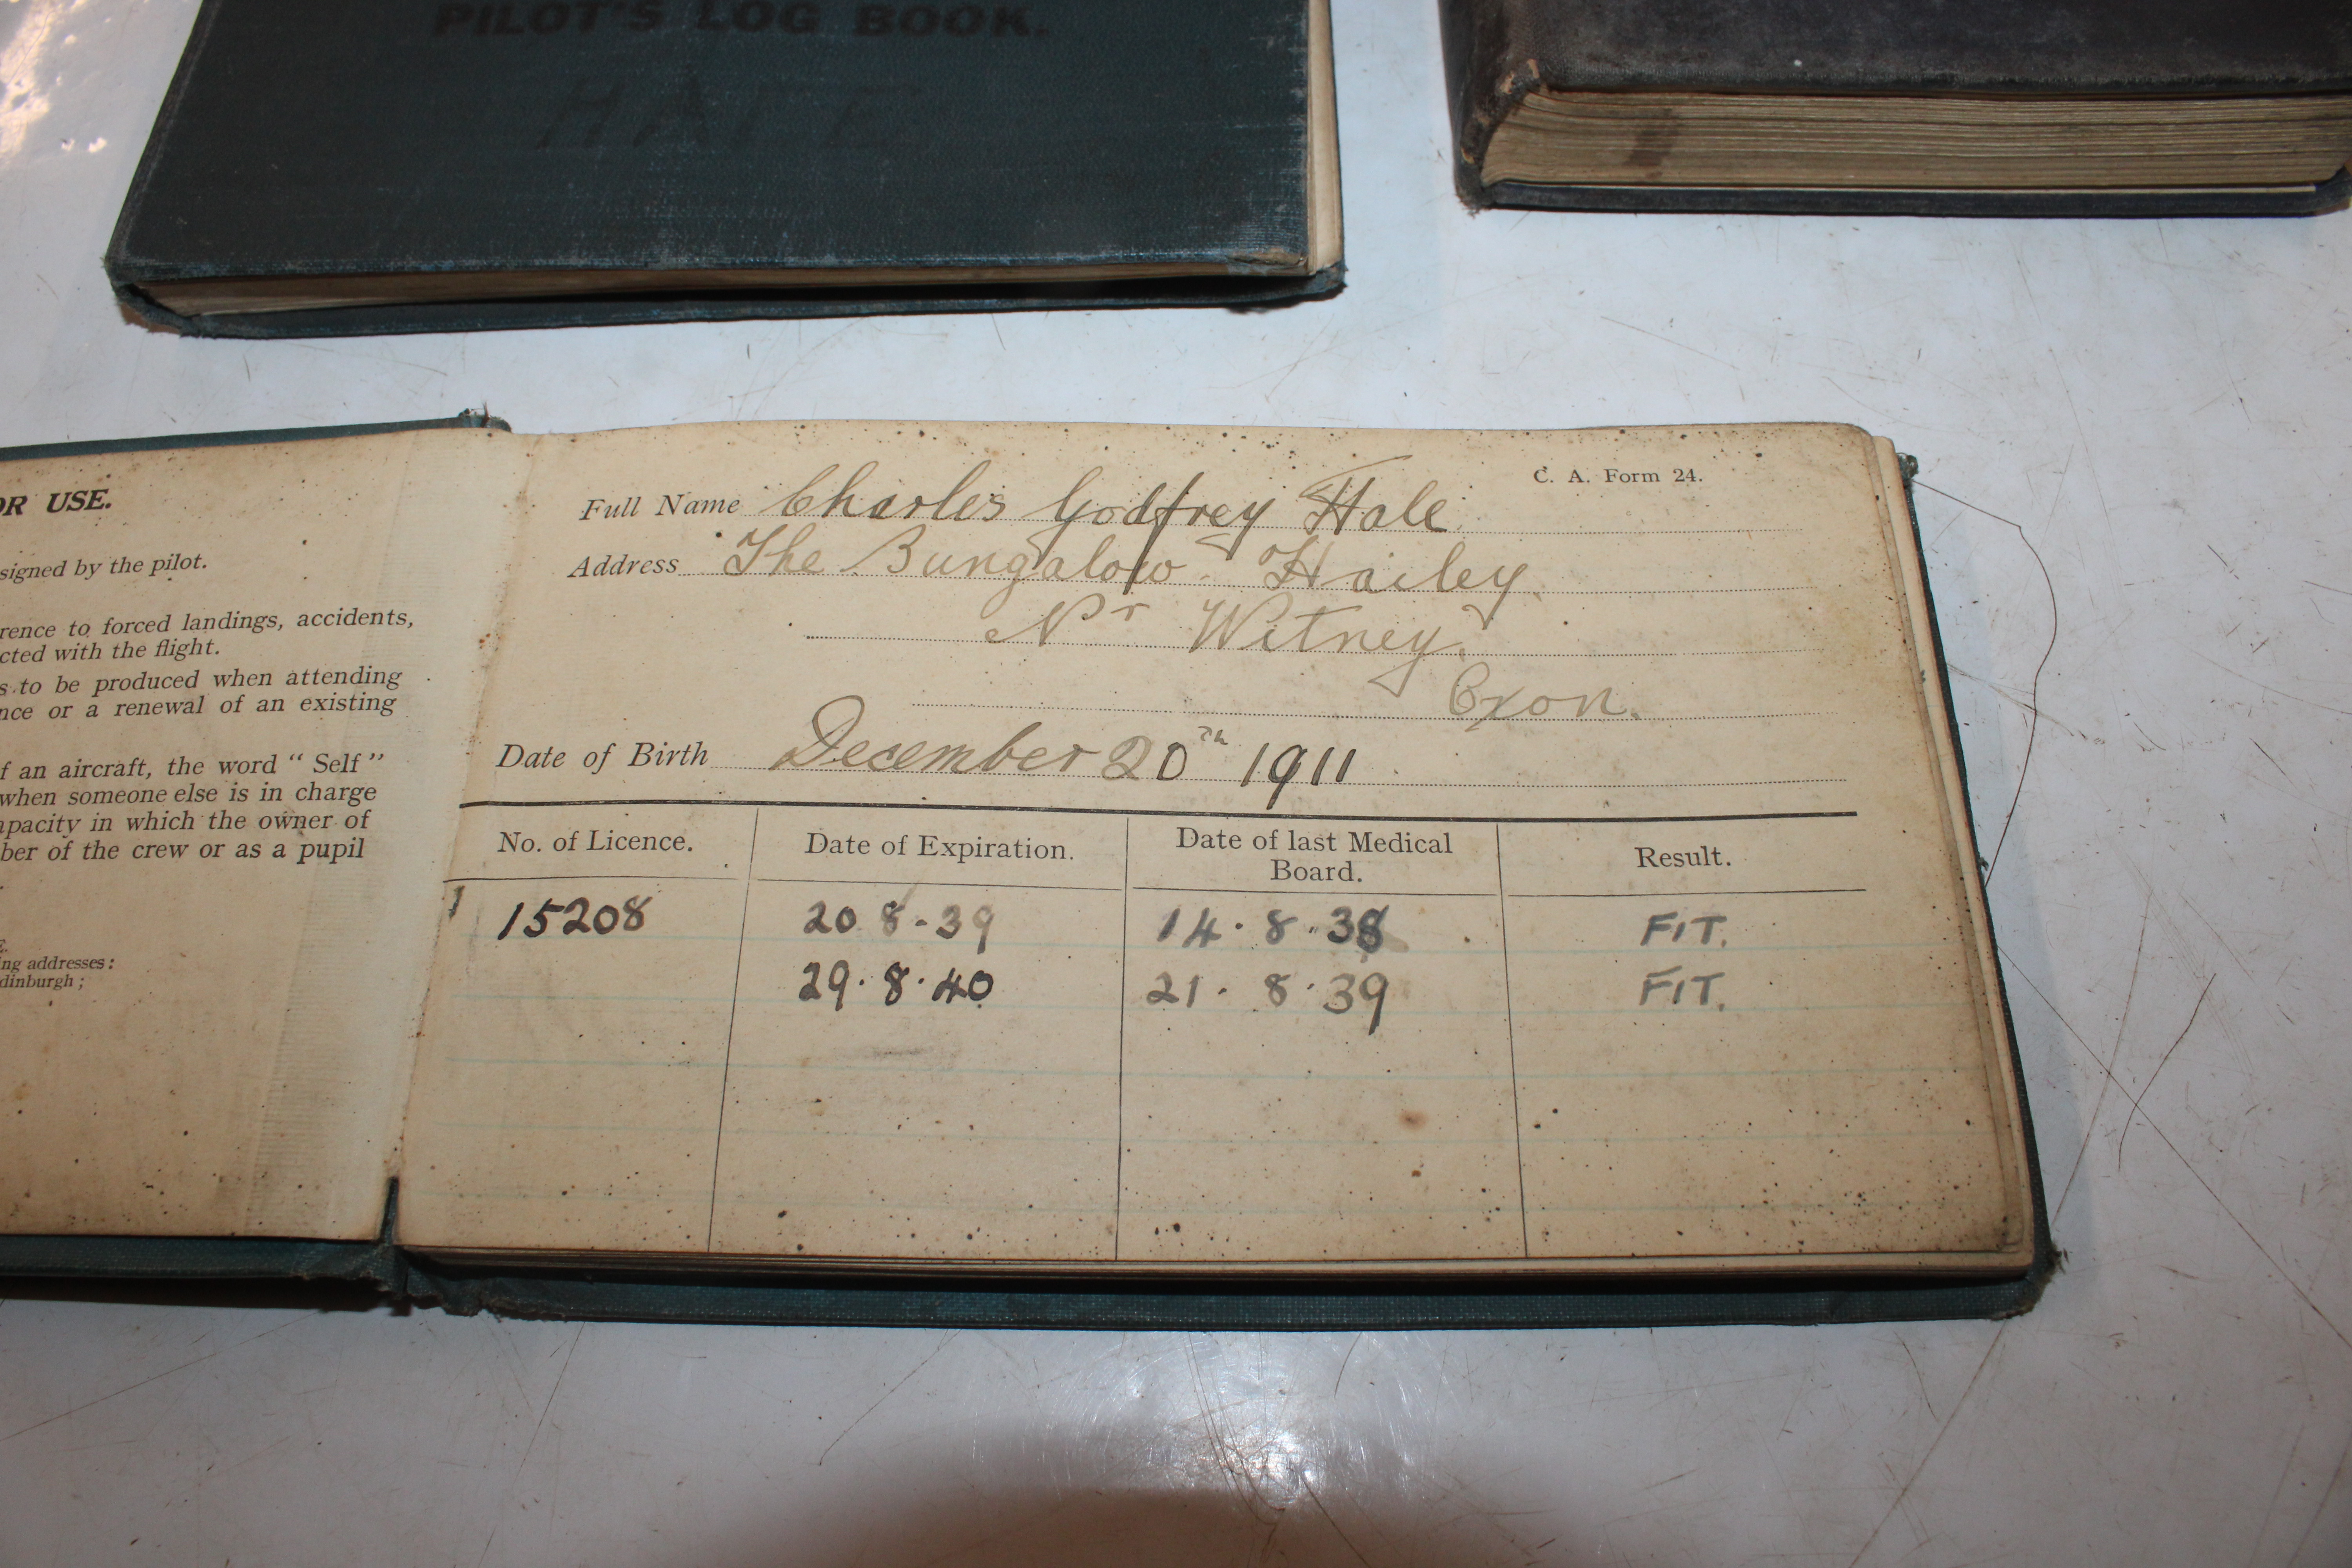 PILOT'S LOG BOOK.
OR USE.
signed by the pilot.
rence to forced landings, accidents,
cted with the flight.
s to be produced when attending
nce or a renewal of an existing
f an aircraft, the word “ Self ”
when someone else is in charge
apacity in which the owner of
ber of the crew or as a pupil
ing addresses:
dinburgh;
C. A. Form 24.
Full Name Charles Godfrey Hale
Address The Bungalow. Hailey.
Nr Witney.
Oxon.
Date of Birth December 20th 1911
No. of Licence. Date of Expiration. Date of last Medical Board. Result.
15208 20 8.39 14.8.38 FIT.
29.8.40 21.8.39 FIT.